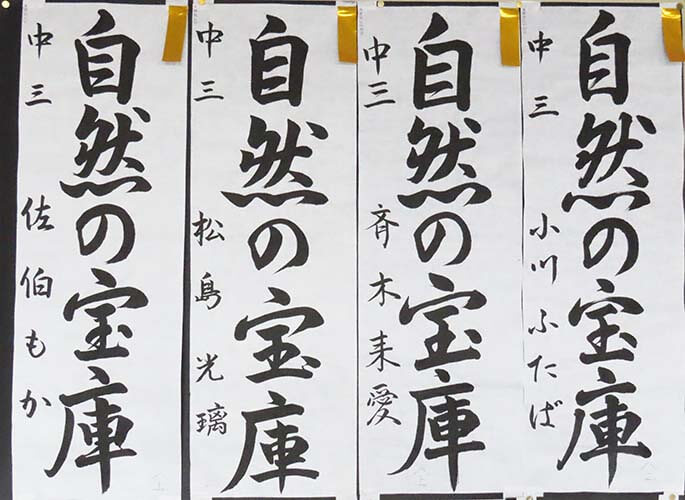 自然の宝庫
中三 小川ふたば
自然の宝庫
中三 斉木来愛
自然の宝庫
中三 松島光璃
自然の宝庫
中三 佐伯もか